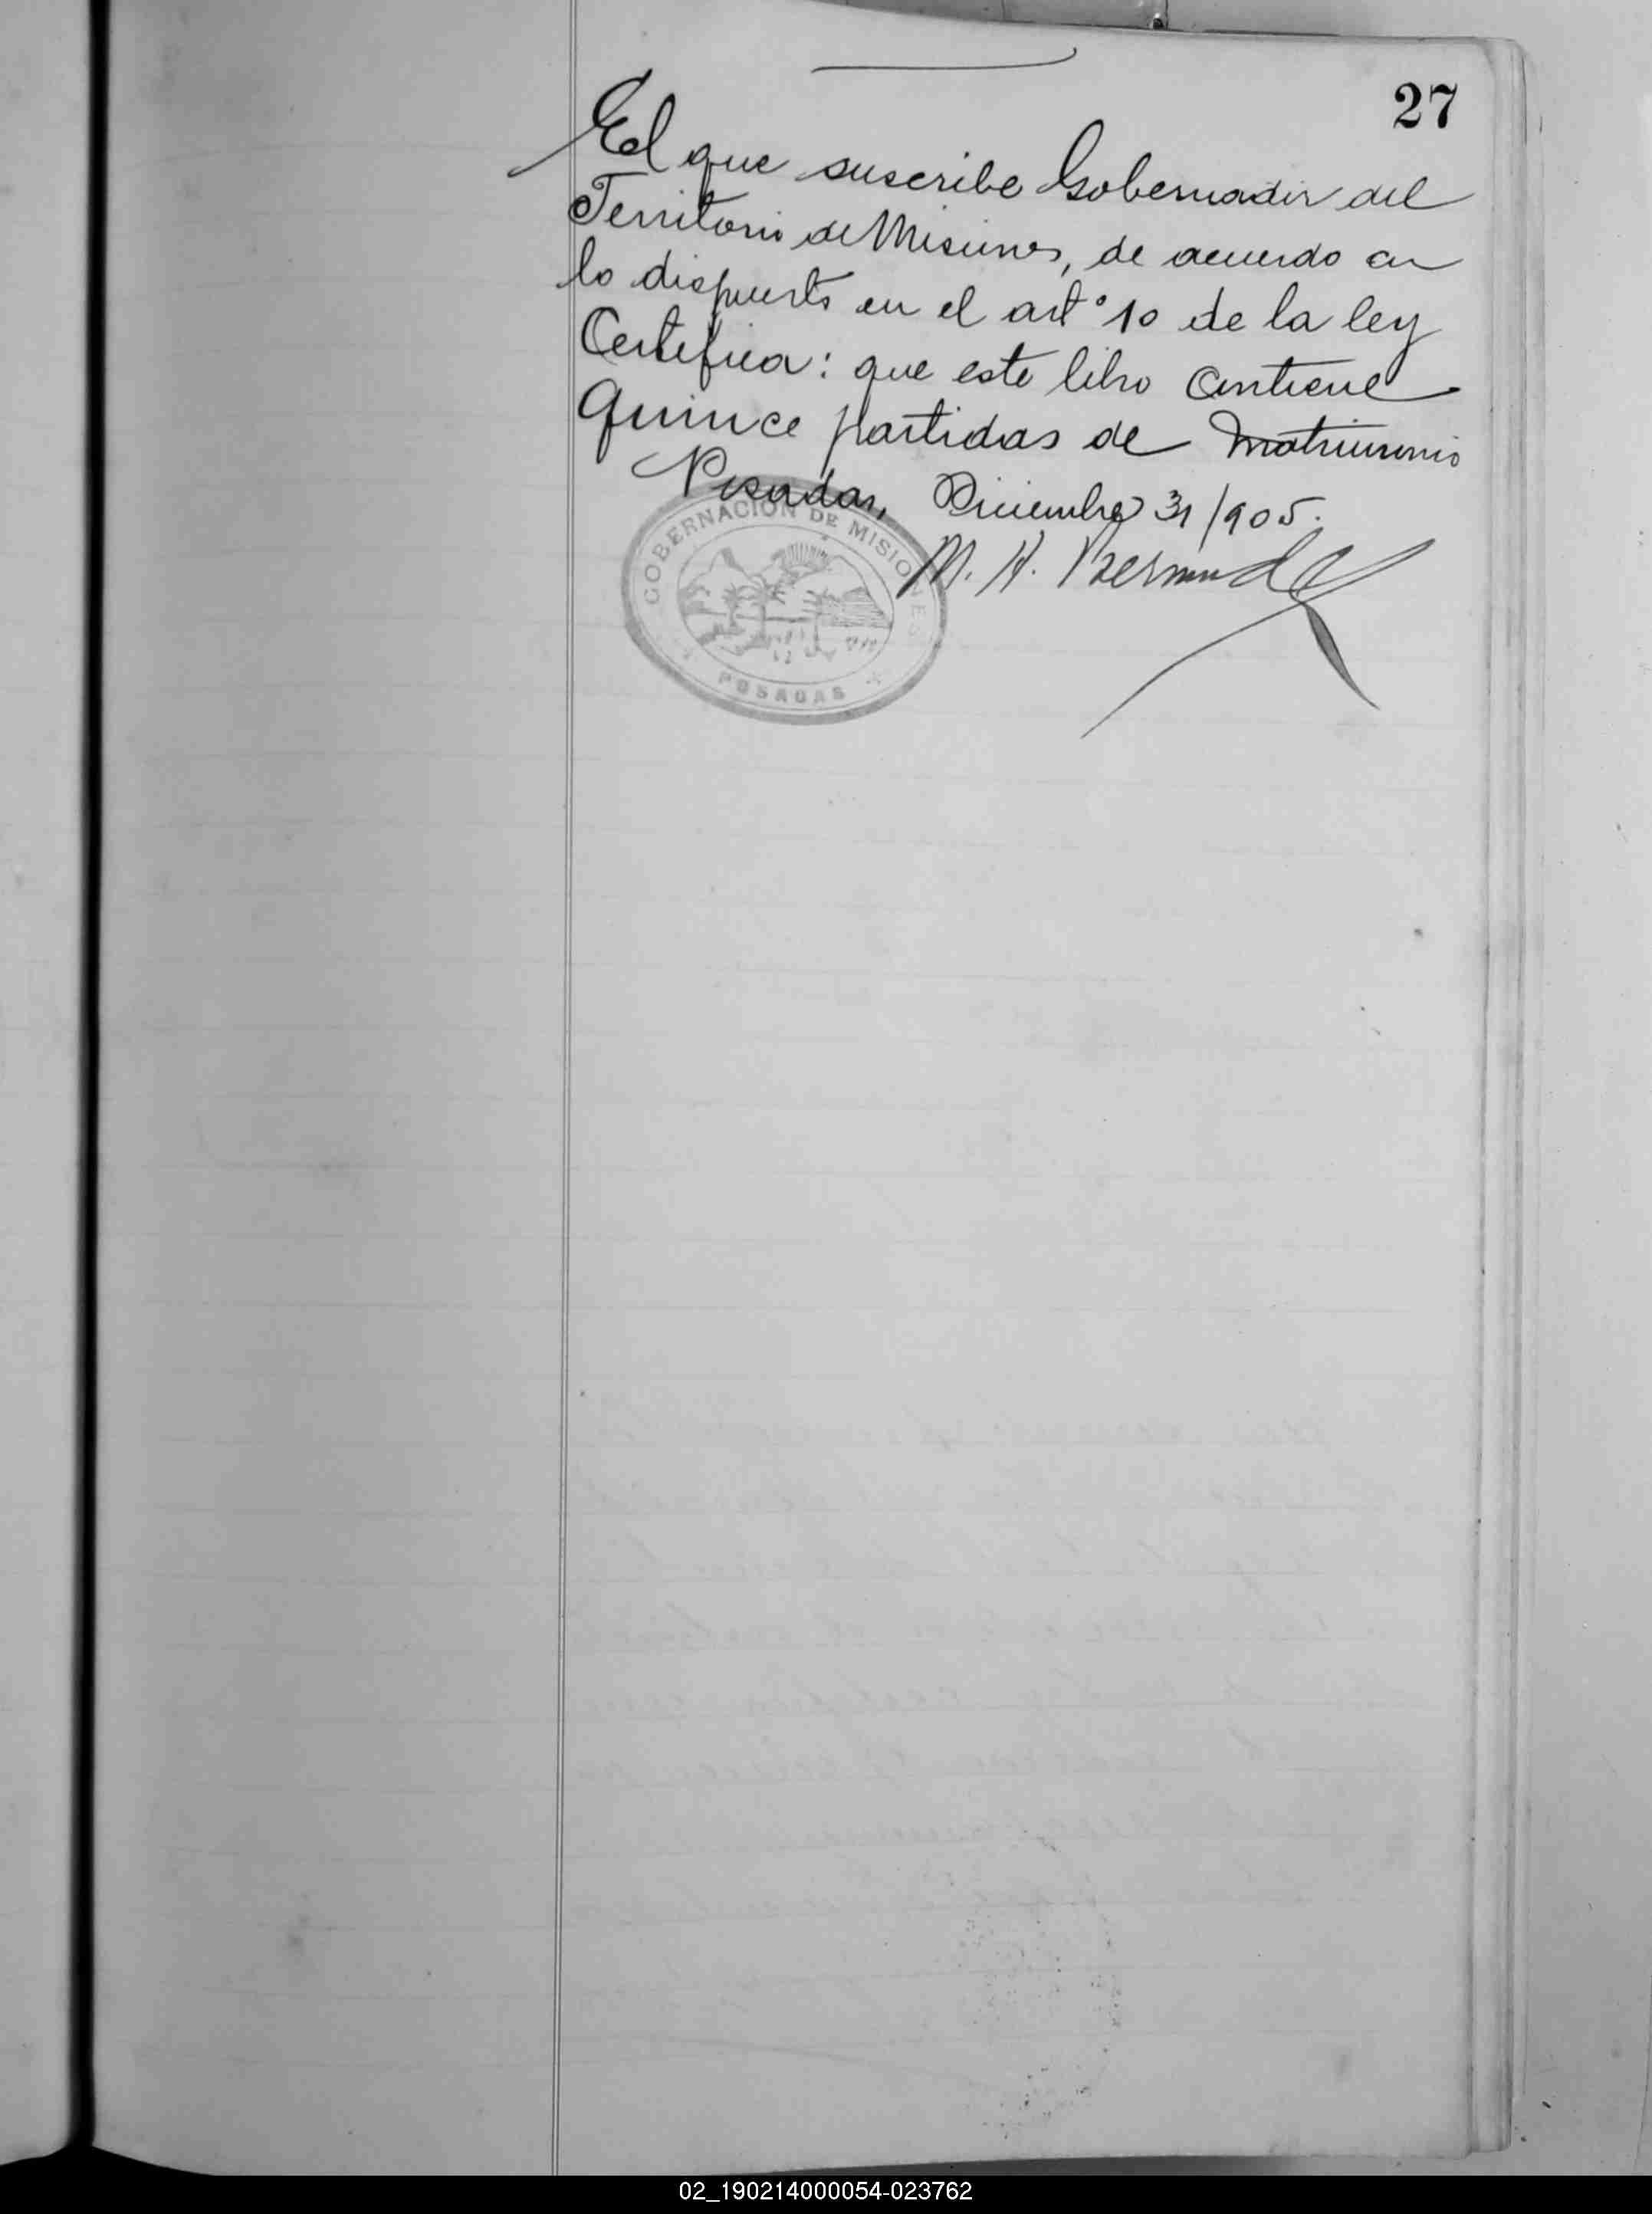 27
El que suscribe Gobernador del
Territorio de Misiones, de acuerdo con
lo dispuesto en el artº 10 de la ley
Certifica: que este libro contiene
quince partidas de matrimonio
Posadas, Diciembre 31/905.
M. A. Bermudez
GOBERNACION DE MISIONES
POSADAS
02_190214000054-023762